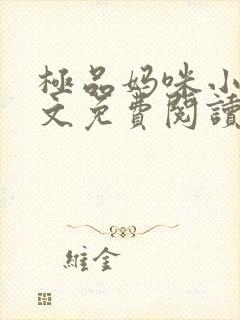 極品媽咪小
文免費閱讀
維金